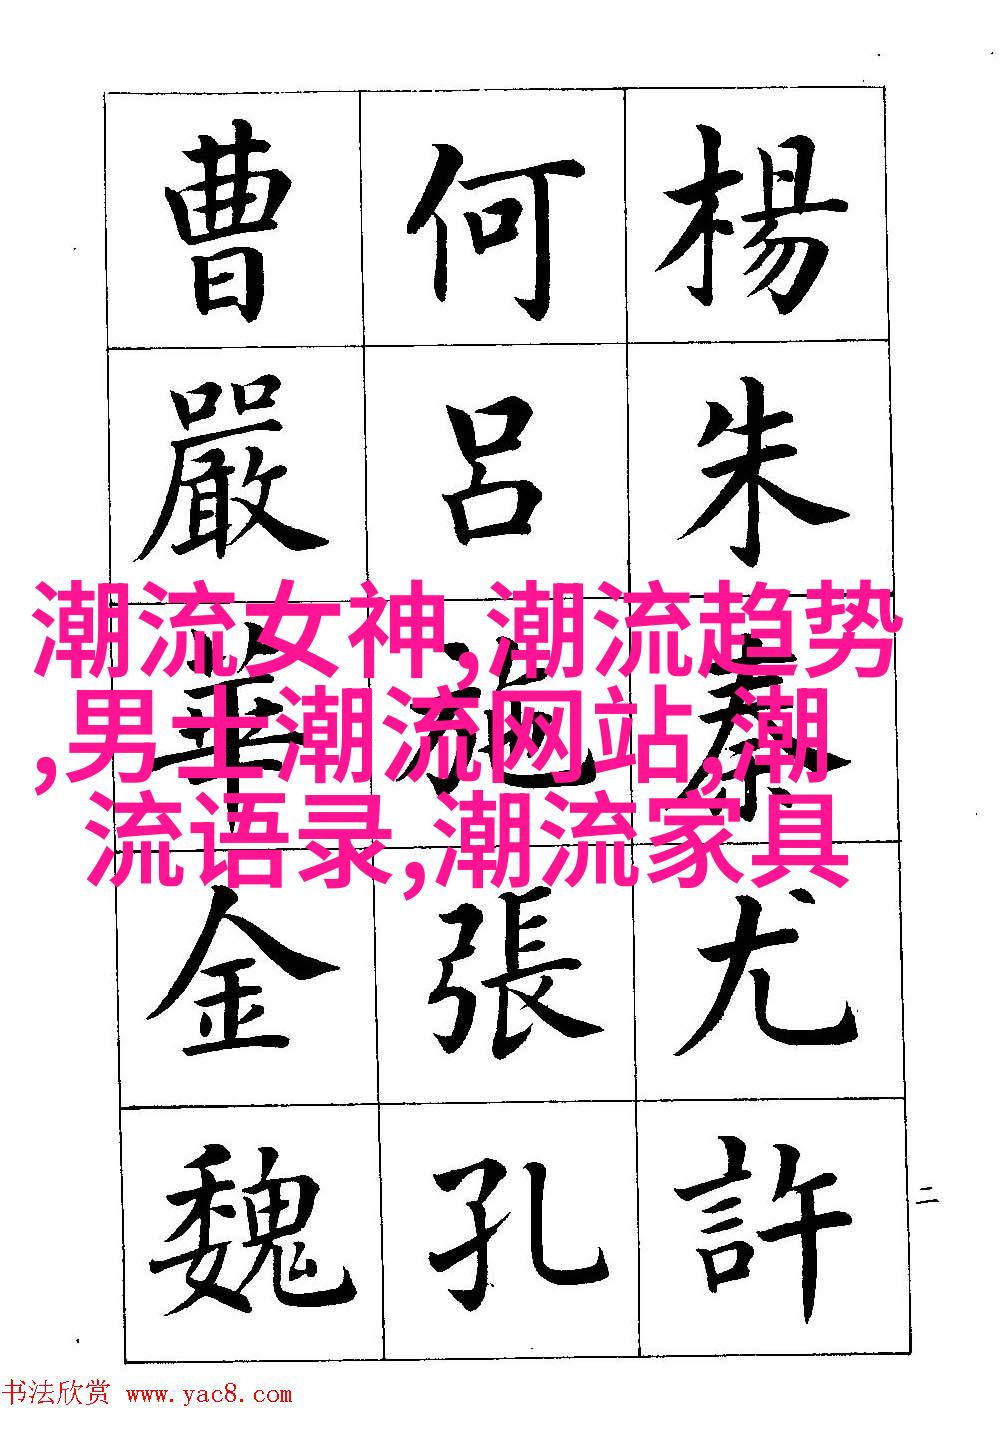 楊朱秦尤許
何呂施張孔
曹嚴華金魏
二
潮流女神,潮流趋势
,男士潮流网站,潮
流语录,潮流家具
书法欣赏 www.yac8.com